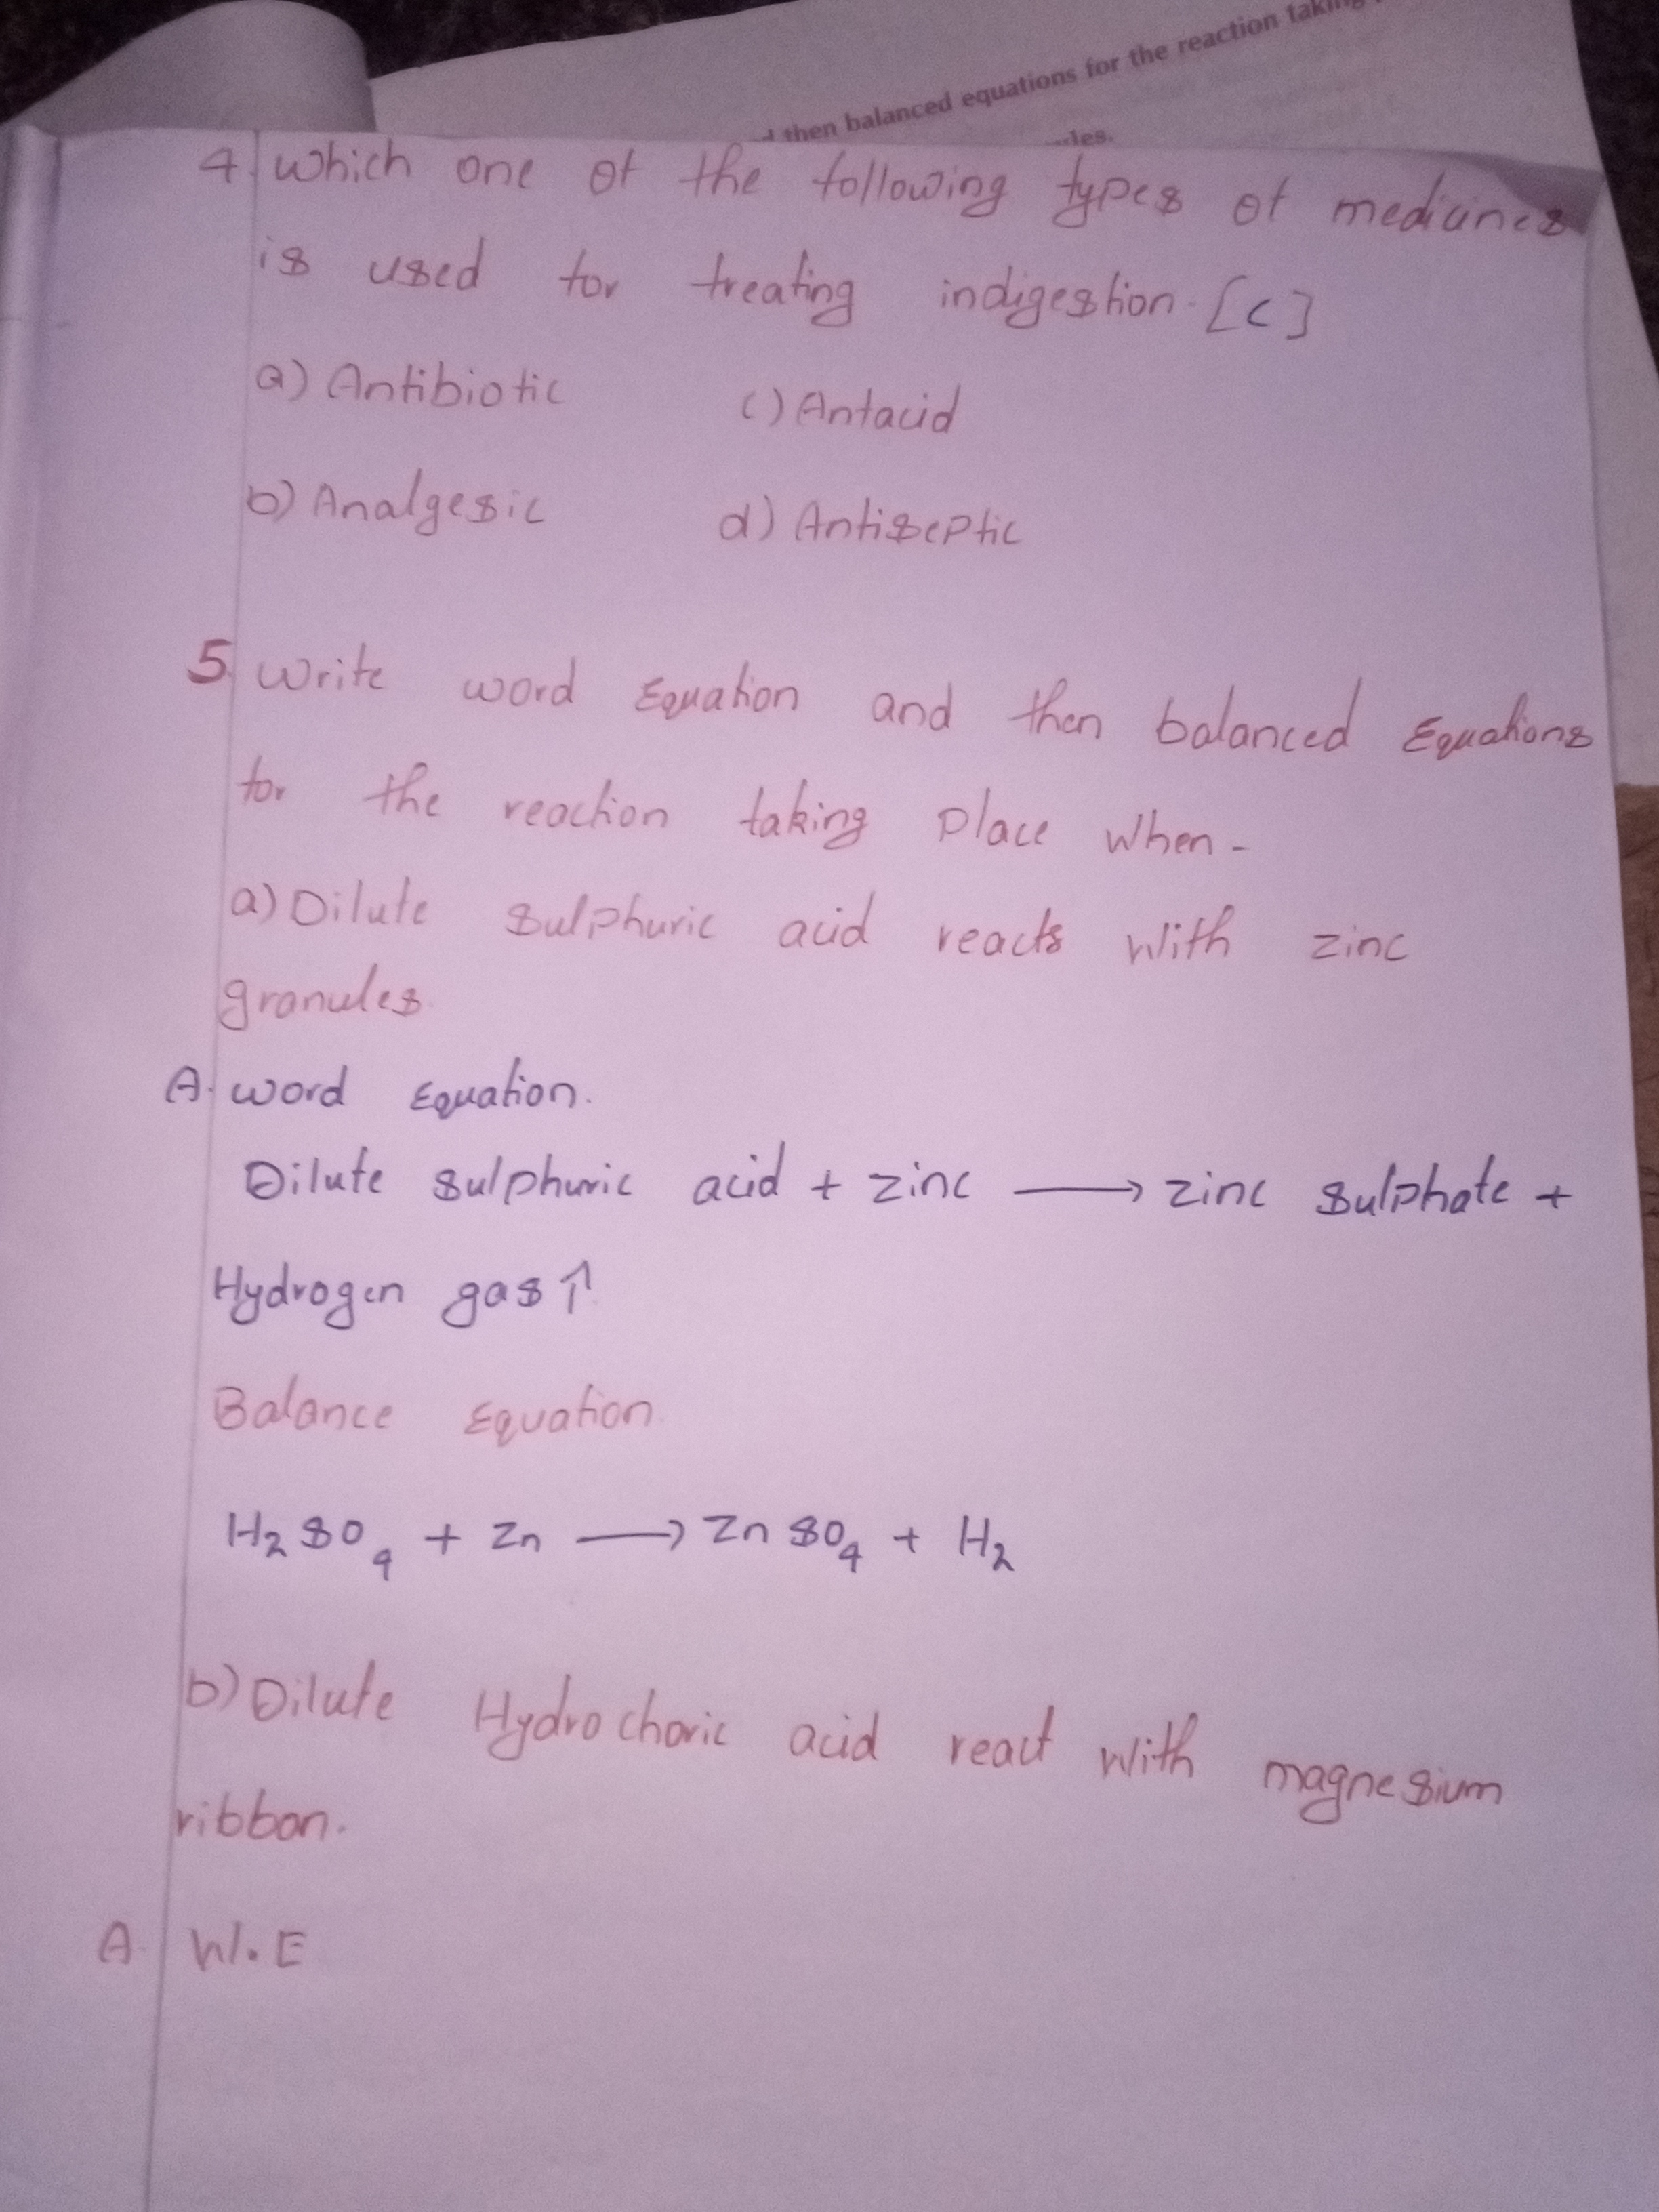 then balanced equations for the reaction
4 Which one of the following types of medicines
is used for treating indigestion. [C]
a) Antibiotic c) Antacid
b) Analgesic d) Antiseptic
5. Write word Equation and then balanced Equations
for the reaction taking place when -
a) Dilute sulphuric acid reacts with zinc
granules.
A. word Equation.
Dilute sulphuric acid + zinc → zinc sulphate +
Hydrogen gas ↑
Balance Equation
H₂SO₄ + Zn → ZnSO₄ + H₂
b) Dilute Hydrochoric acid react with magnesium
ribbon.
A. W.E